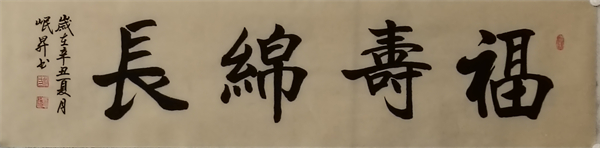 福壽綿長
歲在辛丑夏月
岷昇书